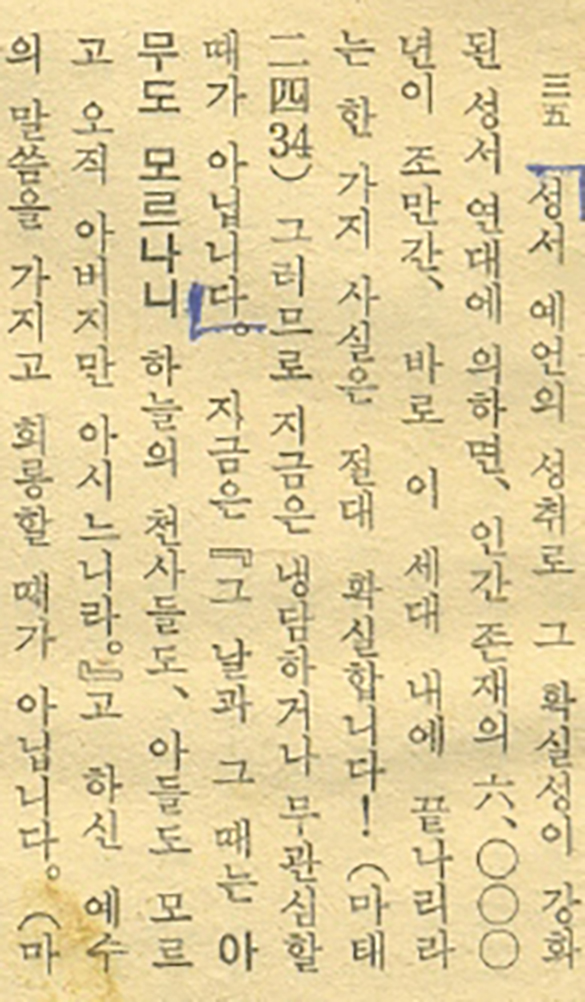 三五 성서 예언의 성취로 그 확실성이 강화
된 성서 연대에 의하면、인간 존재의 六、〇〇〇
년이 조만간、 바로 이 세대 내에 끝나리라
는 한 가지 사실은 절대 확실합니다! (마태
二四34) 그러므로 지금은 냉담하거나 무관심할
때가 아닙니다。 지금은 『그 날과 그 때는 아
무도 모르나니 하늘의 천사들도、아들도 모르
고 오직 아버지만 아시느니라。』고 하신 예수
의 말씀을 가지고 희롱할 때가 아닙니다。(마